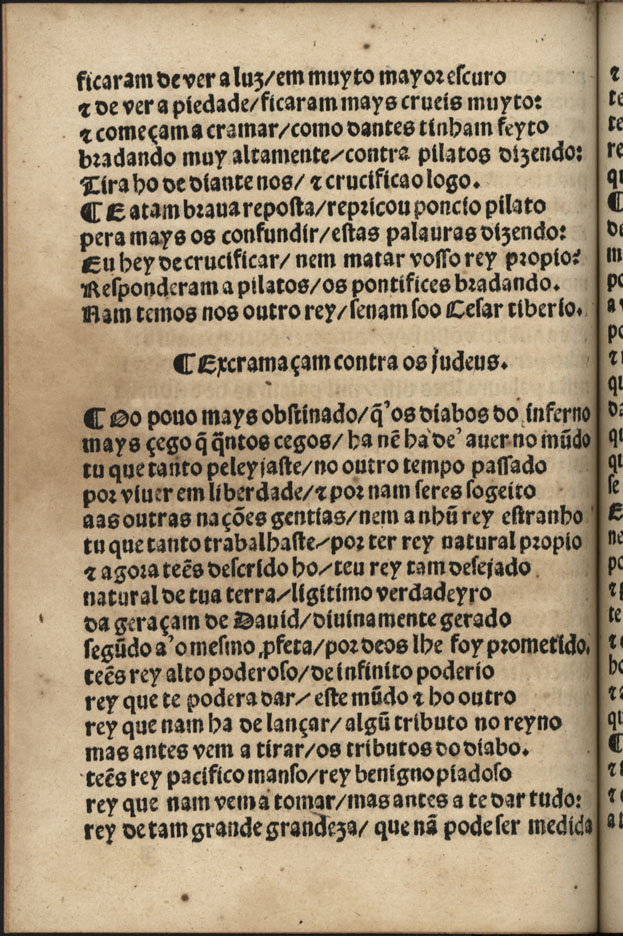 ficaram de ver a luz/em muyto mayor escuro
⁊ de ver a piedade/ficaram mays crueis muyto:
⁊ começam a cramar/como dantes tinham feyto
bradando muy altamente/contra pilatos dizendo:
Tira ho de diante nos/ ⁊ crucificao logo.
¶ E a tam braua reposta/repricou poncio pilato
pera mays os confundir/estas palauras dizendo:
Eu hey de crucificar/ nem matar vosso rey propio?
Responderam a pilatos/os pontifices bradando.
Nam temos nos outro rey/senam soo Cesar tiberio.
¶ Excramaçam contra os judeus.
¶ Oo pouo mays obstinado/q̃ os diabos do inferno
mays çego q̃ q̃ntos cegos/ ha nẽ ha de auer no mũdo
tu que tanto peleyjaste/no outro tempo passado
por viuer em liberdade/⁊ por nam seres sogeito
aas outras nações gentias/nem a nhũ rey estranho
tu que tanto trabalhaste/por ter rey natural propio
⁊ agora teẽs descrido ho/teu rey tam desejado
natural de tua terra/ligitimo verdadeyro
da geraçam de Dauid/diuinamente gerado
segũdo a o mesmo ꝓfeta/por deos lhe foy prometido.
teẽs rey alto poderoso/de infinito poderio
rey que te podera dar/ este mũdo ⁊ ho outro
rey que nam ha de lançar/algũ tributo no reyno
mas antes vem a tirar/os tributos do diabo.
teẽs rey pacifico manso/rey benigno piadoso
rey que nam vem a tomar/mas antes a te dar tudo:
rey de tam grande grandeza/ que nã pode ser medida